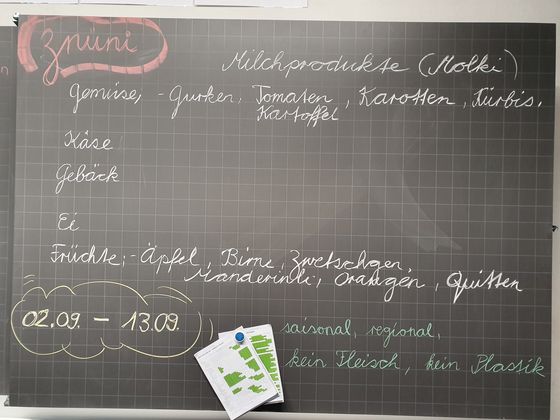 Znüni
Milchprodukte (Molki)
Gemüse, - Gurken, Tomaten, Karotten, Kürbis,
Kartoffel
Käse
Gebäck
Ei
Früchte: - Äpfel, Birne, Zwetschgen,
Manderinli, Orangen, Quitten
02.09. - 13.09.
saisonal, regional,
kein Fleisch, kein Plastik